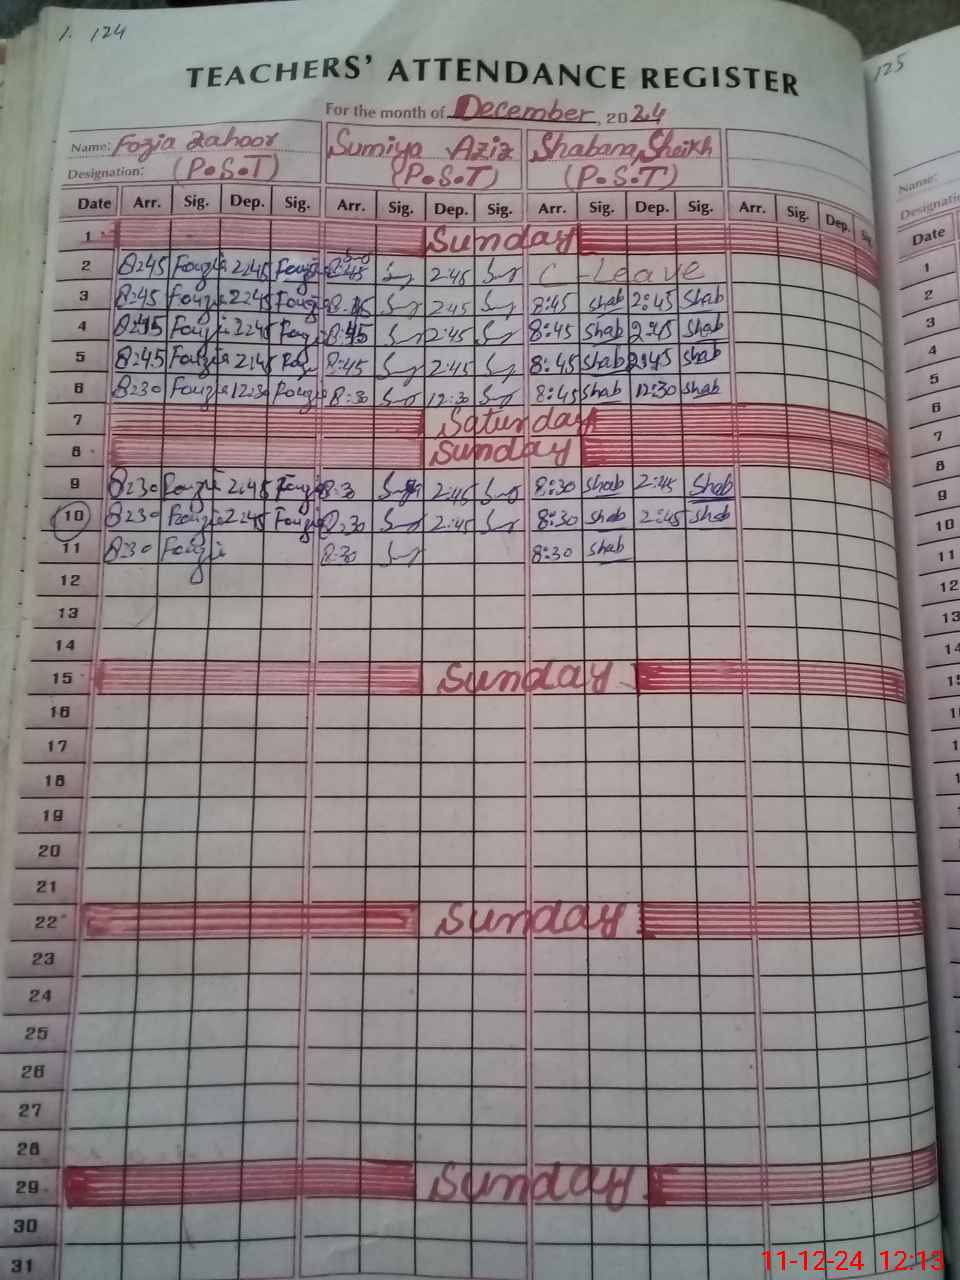 1. 124
125
TEACHERS' ATTENDANCE REGISTER
For the month of December, 2024
Name: Fozia Zahoor Sumiya Aziz Shabana Sheikh
Designation: (P.S.T) (P.S.T) (P.S.T)
Date Arr. Sig. Dep. Sig. Arr. Sig. Dep. Sig. Arr. Sig. Dep. Sig. Arr. Sig. Dep. Sig.
1 Sunday
2 8:45 Fouzia 2:45 Fouzia 8:45 2:45 C-Leave
3 8:45 Fouzia 2:45 Fouzia 8:45 2:45 8:45 Shab 2:45 Shab
4 8:45 Fouzia 2:45 Fouzia 8:45 2:45 8:45 Shab 2:45 Shab
5 8:45 Fouzia 2:45 8:45 2:45 8:45 Shab 2:45 Shab
6 8:30 Fouzia 12:30 Fouzia 8:30 12:30 8:45 Shab 12:30 Shab
7 Saturday
8 Sunday
9 8:30 Fouzia 2:45 Fouzia 8:30 2:45 8:30 Shab 2:45 Shab
10 8:30 Fouzia 2:45 Fouzia 8:30 2:45 8:30 Shab 2:45 Shab
11 8:30 Fouzia 8:30 8:30 Shab
12
13
14
15 Sunday
16
17
18
19
20
21
22 Sunday
23
24
25
26
27
28
29 Sunday
30
31
Name:
Date
1
2
3
4
5
6
7
8
9
10
11
12
13
14
11-12-24 12:13